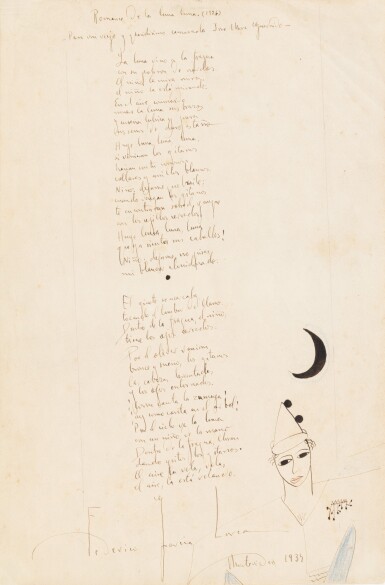 Romance de la luna luna (1924)
Para mi viejo y grandísimo camarada José
La luna vino a la fragua
con su polisón de nardos
El niño la mira mira
el niño la está mirando
En el aire conmovido
mueve la luna sus brazos
y enseña lúbrica y pura
sus senos de duro estaño
Huye luna, luna, luna
si vinieran los gitanos
harían con tu corazón
collares y anillos blancos.
Niño, déjame que baile;
cuando vengan los gitanos
te encontrarán sobre el yunque
con los ojillos cerrados.
Huye luna, luna, luna
que ya siento sus caballos!
Niño, déjame, no pises
mi blancor almidonado.
El jinete se acercaba
tocando el tambor del llano.
Dentro de la fragua, el niño
tiene los ojos cerrados.
Por el olivar venían,
bronce y sueño, los gitanos
las cabezas levantadas,
y los ojos entornados
¡Cómo canta la zumaya!
¡ay como canta en el árbol!
Por el cielo va la luna
con un niño de la mano
Dentro de la fragua, lloran
dando gritos los gitanos.
El aire la vela, vela,
el aire, la está velando.
Federico García Lorca
Montevideo 1934